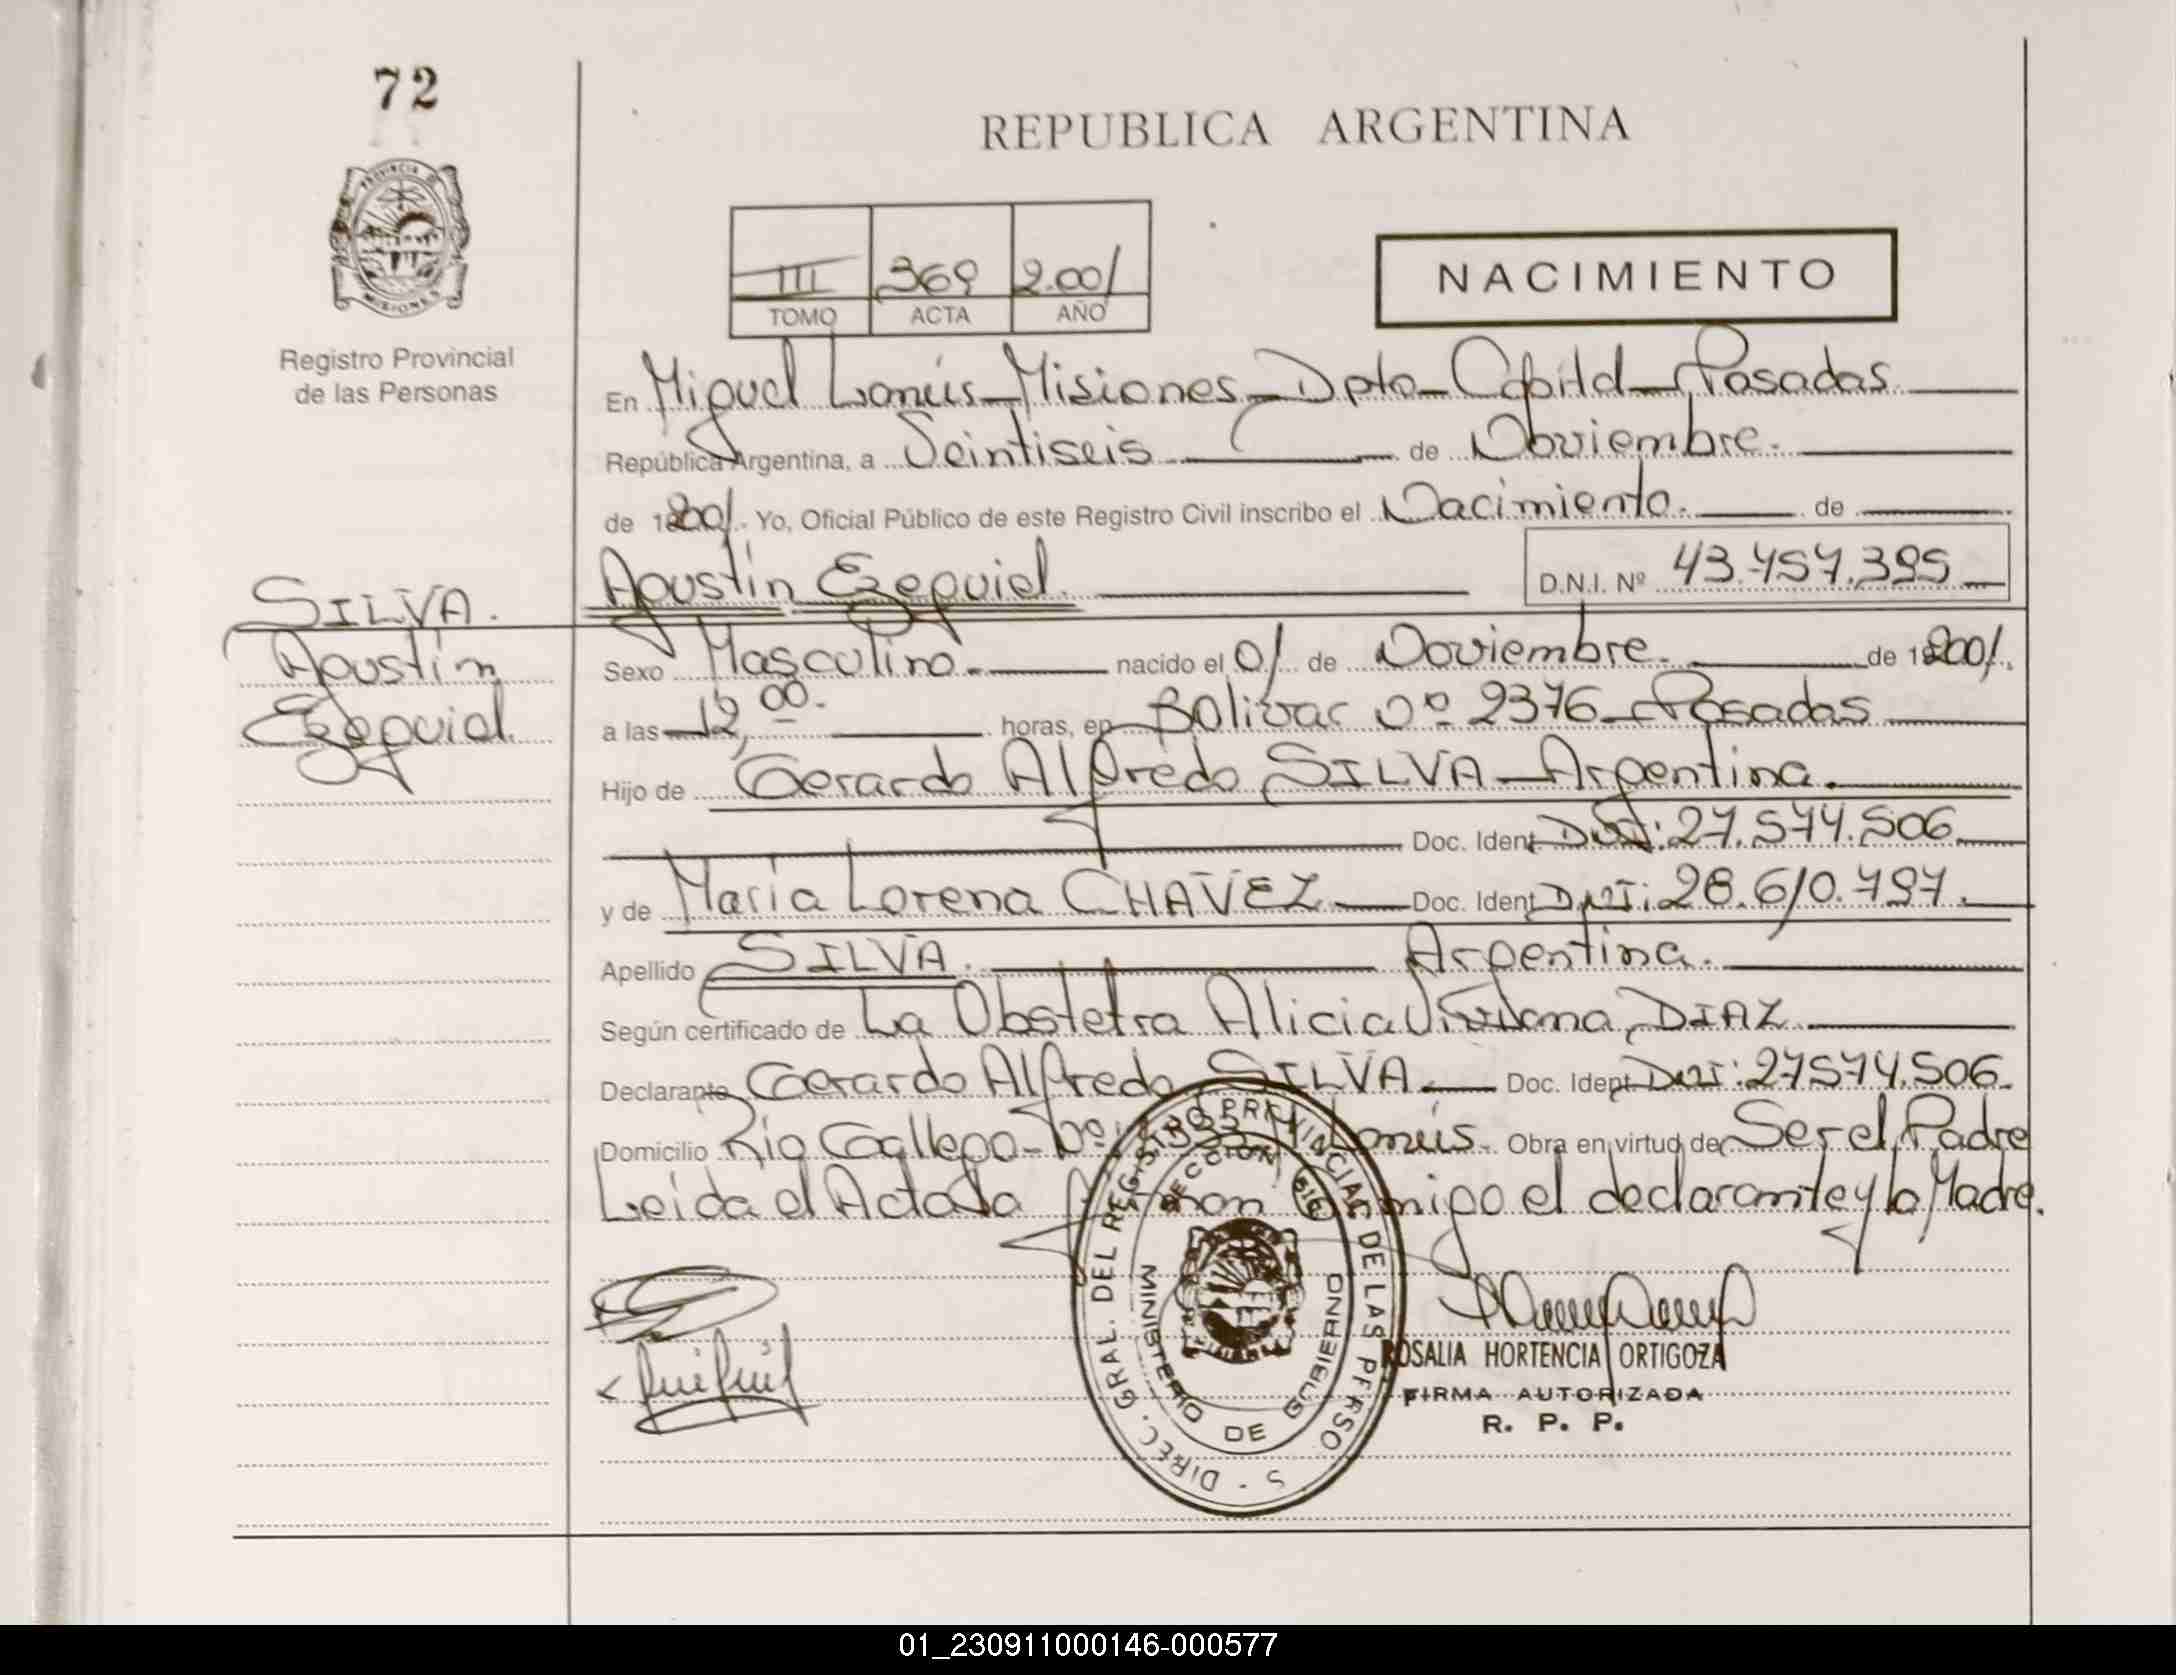 72
REPUBLICA ARGENTINA
PROVINCIA D MISIONES
Registro Provincial
de las Personas
III 369 2.001
TOMO ACTA AÑO
NACIMIENTO
En Miguel Lanús - Misiones - Dpto - Capital - Posadas
República Argentina, a Veintiseis de Noviembre.
de 2001. Yo, Oficial Público de este Registro Civil inscribo el Nacimiento. de
Agustín Ezequiel. D.N.I. Nº 43.457.395
SILVA.
Agustín
Ezequiel.
Sexo Masculino. nacido el 01 de Noviembre. de 2001.
a las 12,00. horas, en Bolivar nº 2376 - Posadas
Hijo de Gerardo Alfredo SILVA - Argentina.
Doc. Ident DNI: 27.574.506
y de María Lorena CHAVEZ Doc. Ident DNI: 28.610.797.
Apellido SILVA. Argentina.
Según certificado de La Obstetra Alicia Viviana DIAZ
Declarante Gerardo Alfredo SILVA. Doc. Ident DNI: 27574.506.
Domicilio Río Gallego - Lanús. Obra en virtud de Ser el Padre
Leida el Acta la conmigo el declarante y la Madre.
DIREC. GRAL. DEL REGISTRO PROVINCIAL DE LAS PERSO S
MINISTERIO DE GOBIERNO
ROSALIA HORTENCIA ORTIGOZA
FIRMA AUTORIZADA
R. P. P.
01_230911000146-000577